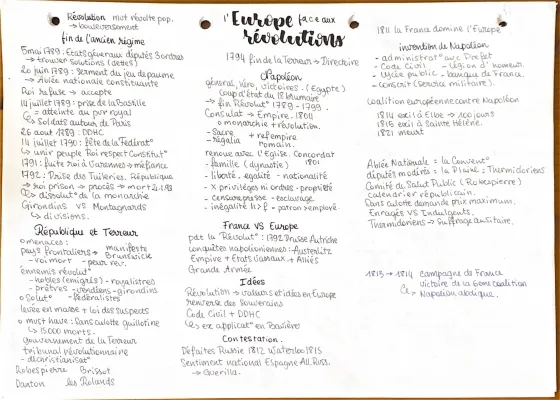 l'Europe face aux
révolutions
Révolution mvt révolte pop.
→ bouleversement
fin de l'ancien régime
5 mai 1789 : Etats généraux députés 3 ordres
→ trouver solutions (dettes)
20 juin 1789 : serment du jeu de paume
→ Ablée nationale constituante
Roi refuse → accepte
14 juillet 1789 : prise de la Bastille
= atteinte au pvr royal
↳ Soldats autour de Paris
26 aout 1789 : DDHC
14 juillet 1790 : fête de la Fédérat°
↳ unir peuple Roi respect Constitut°
1791 : fuite roi à Varennes → méfiance
1792 : Prise des Tuileries. République
→ roi prison → procès → mort 21.1.93
↳ dissolut° de la monarchie
Girondins VS Montagnards
↳ divisions.
République et Terreur
o menaces :
pays frontaliers → manifeste
- roi mort - peur rev. Brunswick
ennemis révolut°
- nobles (émigrés) - royalistres
- prêtres - vendéens - girondins
o Solut° - fédéralistes
levée en masse + loi des suspects
o must have : Sans culotte guillotine
↳ 15000 morts.
gouvernement de la Terreur
tribunal révolutionnaire
- déchristianisat°
Robespierre Brissot
Danton les Rolands
1794 fin de la Terreur → Directoire
Napoléon
général, héro, victoires. (Egypte)
coup d'état du 18 brumaire
→ fin Révolut° 1789 - 1799.
Consulat → Empire. 1804
o monarchie + révolution.
- Sacre + ref empire
- régalia romain.
renoue avec l'Eglise. Concordat
- famille (dynastie) 1801
- liberté, égalité - nationalité
- X privilèges ni ordres - propriété
- censure presse - esclavage
- inégalité h > f - patron > employé
France VS Europe
pdt la Révolut° : 1792 Prusse Autriche
conquêtes napoléoniennes : Austerlitz
Empire + Etats Vassaux + Alliés
Grande Armée
Idées
Révolution → valeurs et idées en Europe
renverse des souverains
Code Civil + DDHC
↳ ex applicat° en Bavière
Contestation.
Défaites Russie 1812 Waterloo 1815
Sentiment national Espagne All. Russ.
→ Guerilla.
1811 la France domine l'Europe
invention de Napoléon
- administrat° avec Préfet
- Code Civil - Légion d'honneur
- Lycée public - banque de France.
- conscrit (service militaire).
Coalition européenne contre Napoléon
1814 exil à Elbe → 100 jours
1815 exil à Sainte Hélène.
1821 meurt
Ablée Nationale : la Convent°
députés modérés : la Plaine : Thermidoriens
Comité du Salut Public (Robespierre)
Calendrier républicain.
Sans culotte demande prix maximum.
Enragés VS Indulgents.
Thermidoriens → Suffrage censitaire.
1813 → 1814 campagne de France
victoire de la 6ème coalition
↳ Napoléon abdique.